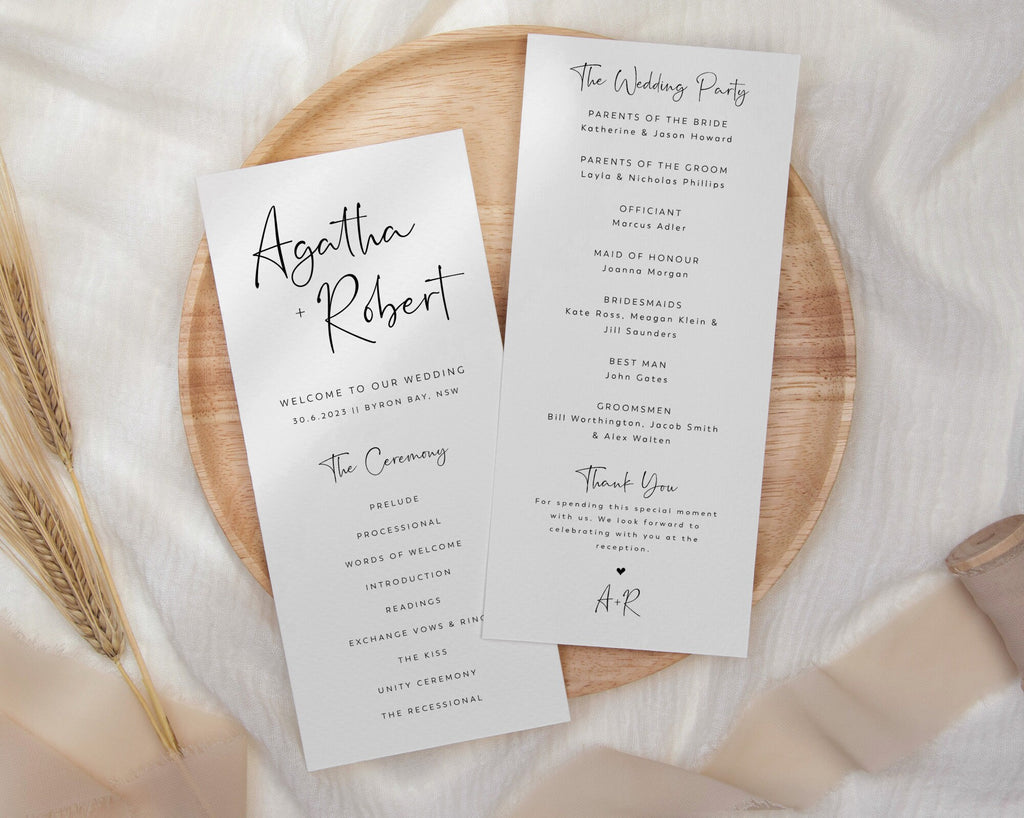 Agatha
+ Robert
WELCOME TO OUR WEDDING
30.6.2023 || BYRON BAY, NSW
The Ceremony
PRELUDE
PROCESSIONAL
WORDS OF WELCOME
INTRODUCTION
READINGS
EXCHANGE VOWS &
THE KISS
UNITY CEREMONY
THE RECESSIONAL
The Wedding Party
PARENTS OF THE BRIDE
Katherine & Jason Howard
PARENTS OF THE GROOM
Layla & Nicholas Phillips
OFFICIANT
Marcus Adler
MAID OF HONOUR
Joanna Morgan
BRIDESMAIDS
Kate Ross, Meagan Klein &
Jill Saunders
BEST MAN
John Gates
GROOMSMEN
Bill Worthington, Jacob Smith
& Alex Walten
Thank You
For spending this special moment
with us. We look forward to
celebrating with you at the
reception.
♥
A+R